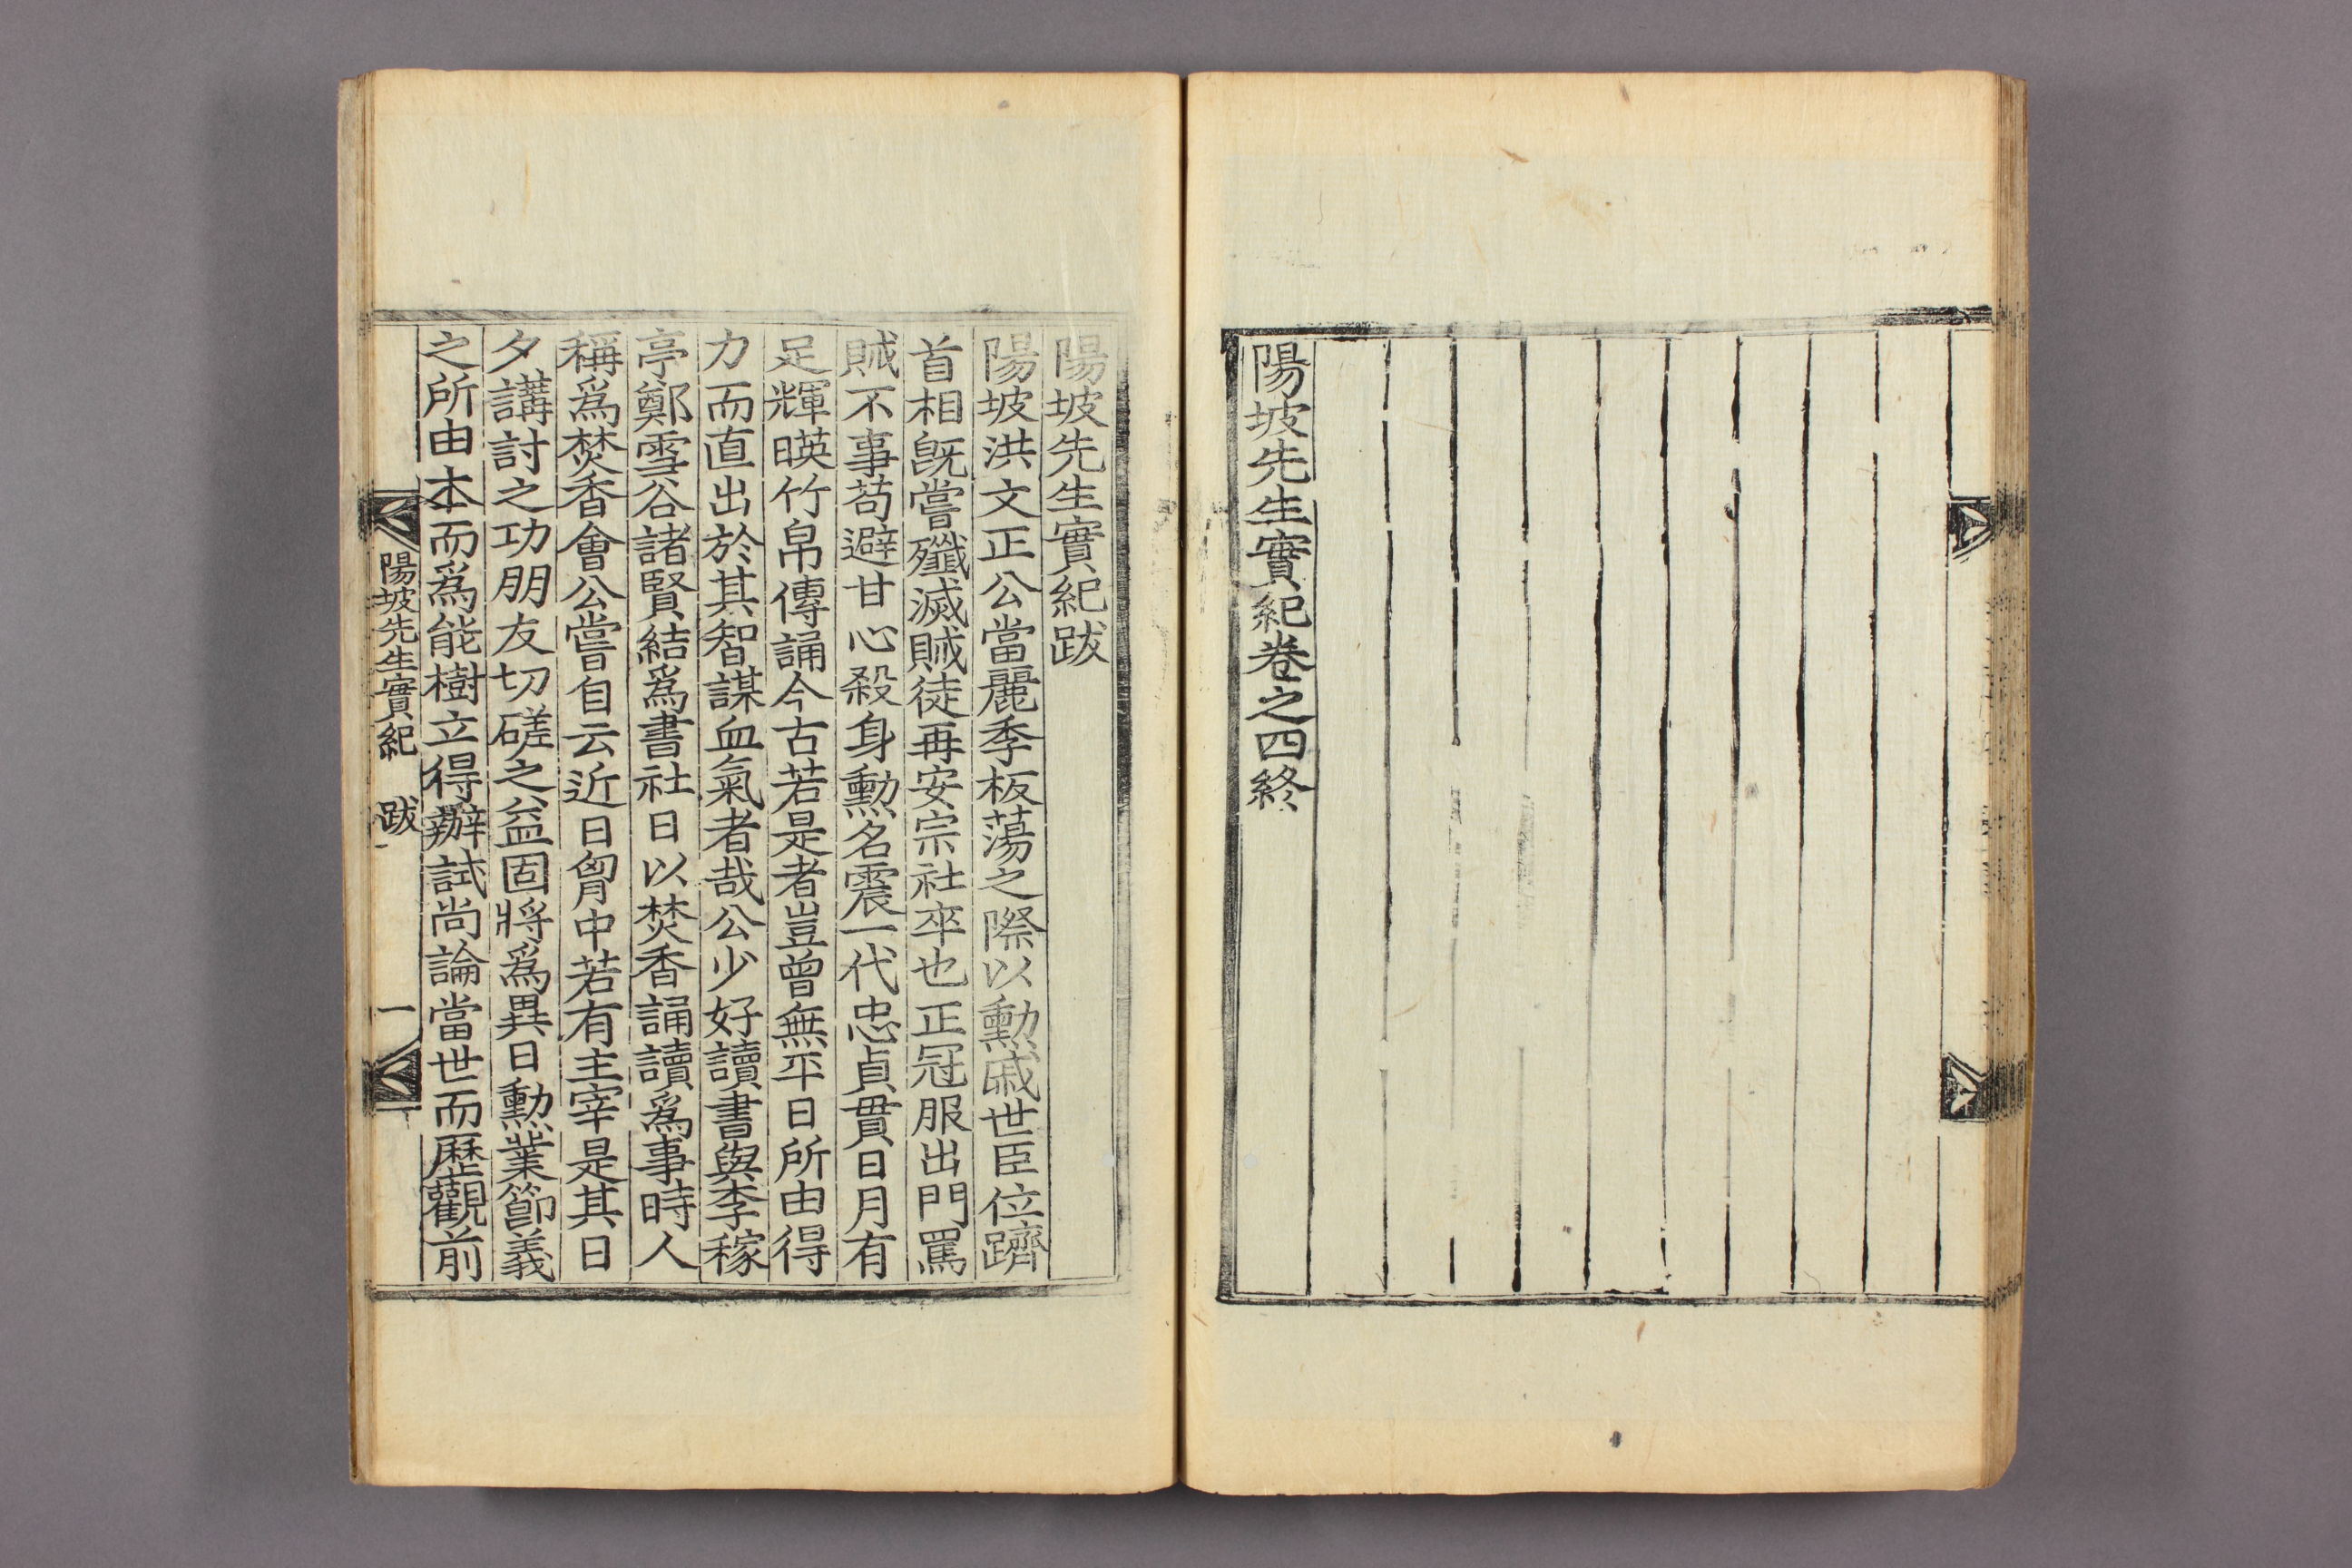 陽坡先生實紀卷之四終
陽坡先生實紀跋
陽坡洪文正公當麗季板蕩之際以勳戚世臣位躋
首相旣嘗殲滅賊徒再安宗社卒也正冠服出門罵
賊不事苟避甘心殺身勳名震一代忠貞貫日月有
足輝暎竹帛傳誦今古若是者豈曾無平日所由得
力而直出於其智謀血氣者哉公少好讀書與李稼
亭鄭雪谷諸賢結爲書社日以焚香誦讀爲事時人
稱爲焚香會公嘗自云近日胷中若有主宰是其日
夕講討之功朋友切磋之益固將爲異日勳業節義
之所由本而爲能樹立得辦試尚論當世而歷觀前
陽坡先生實紀 跋 一